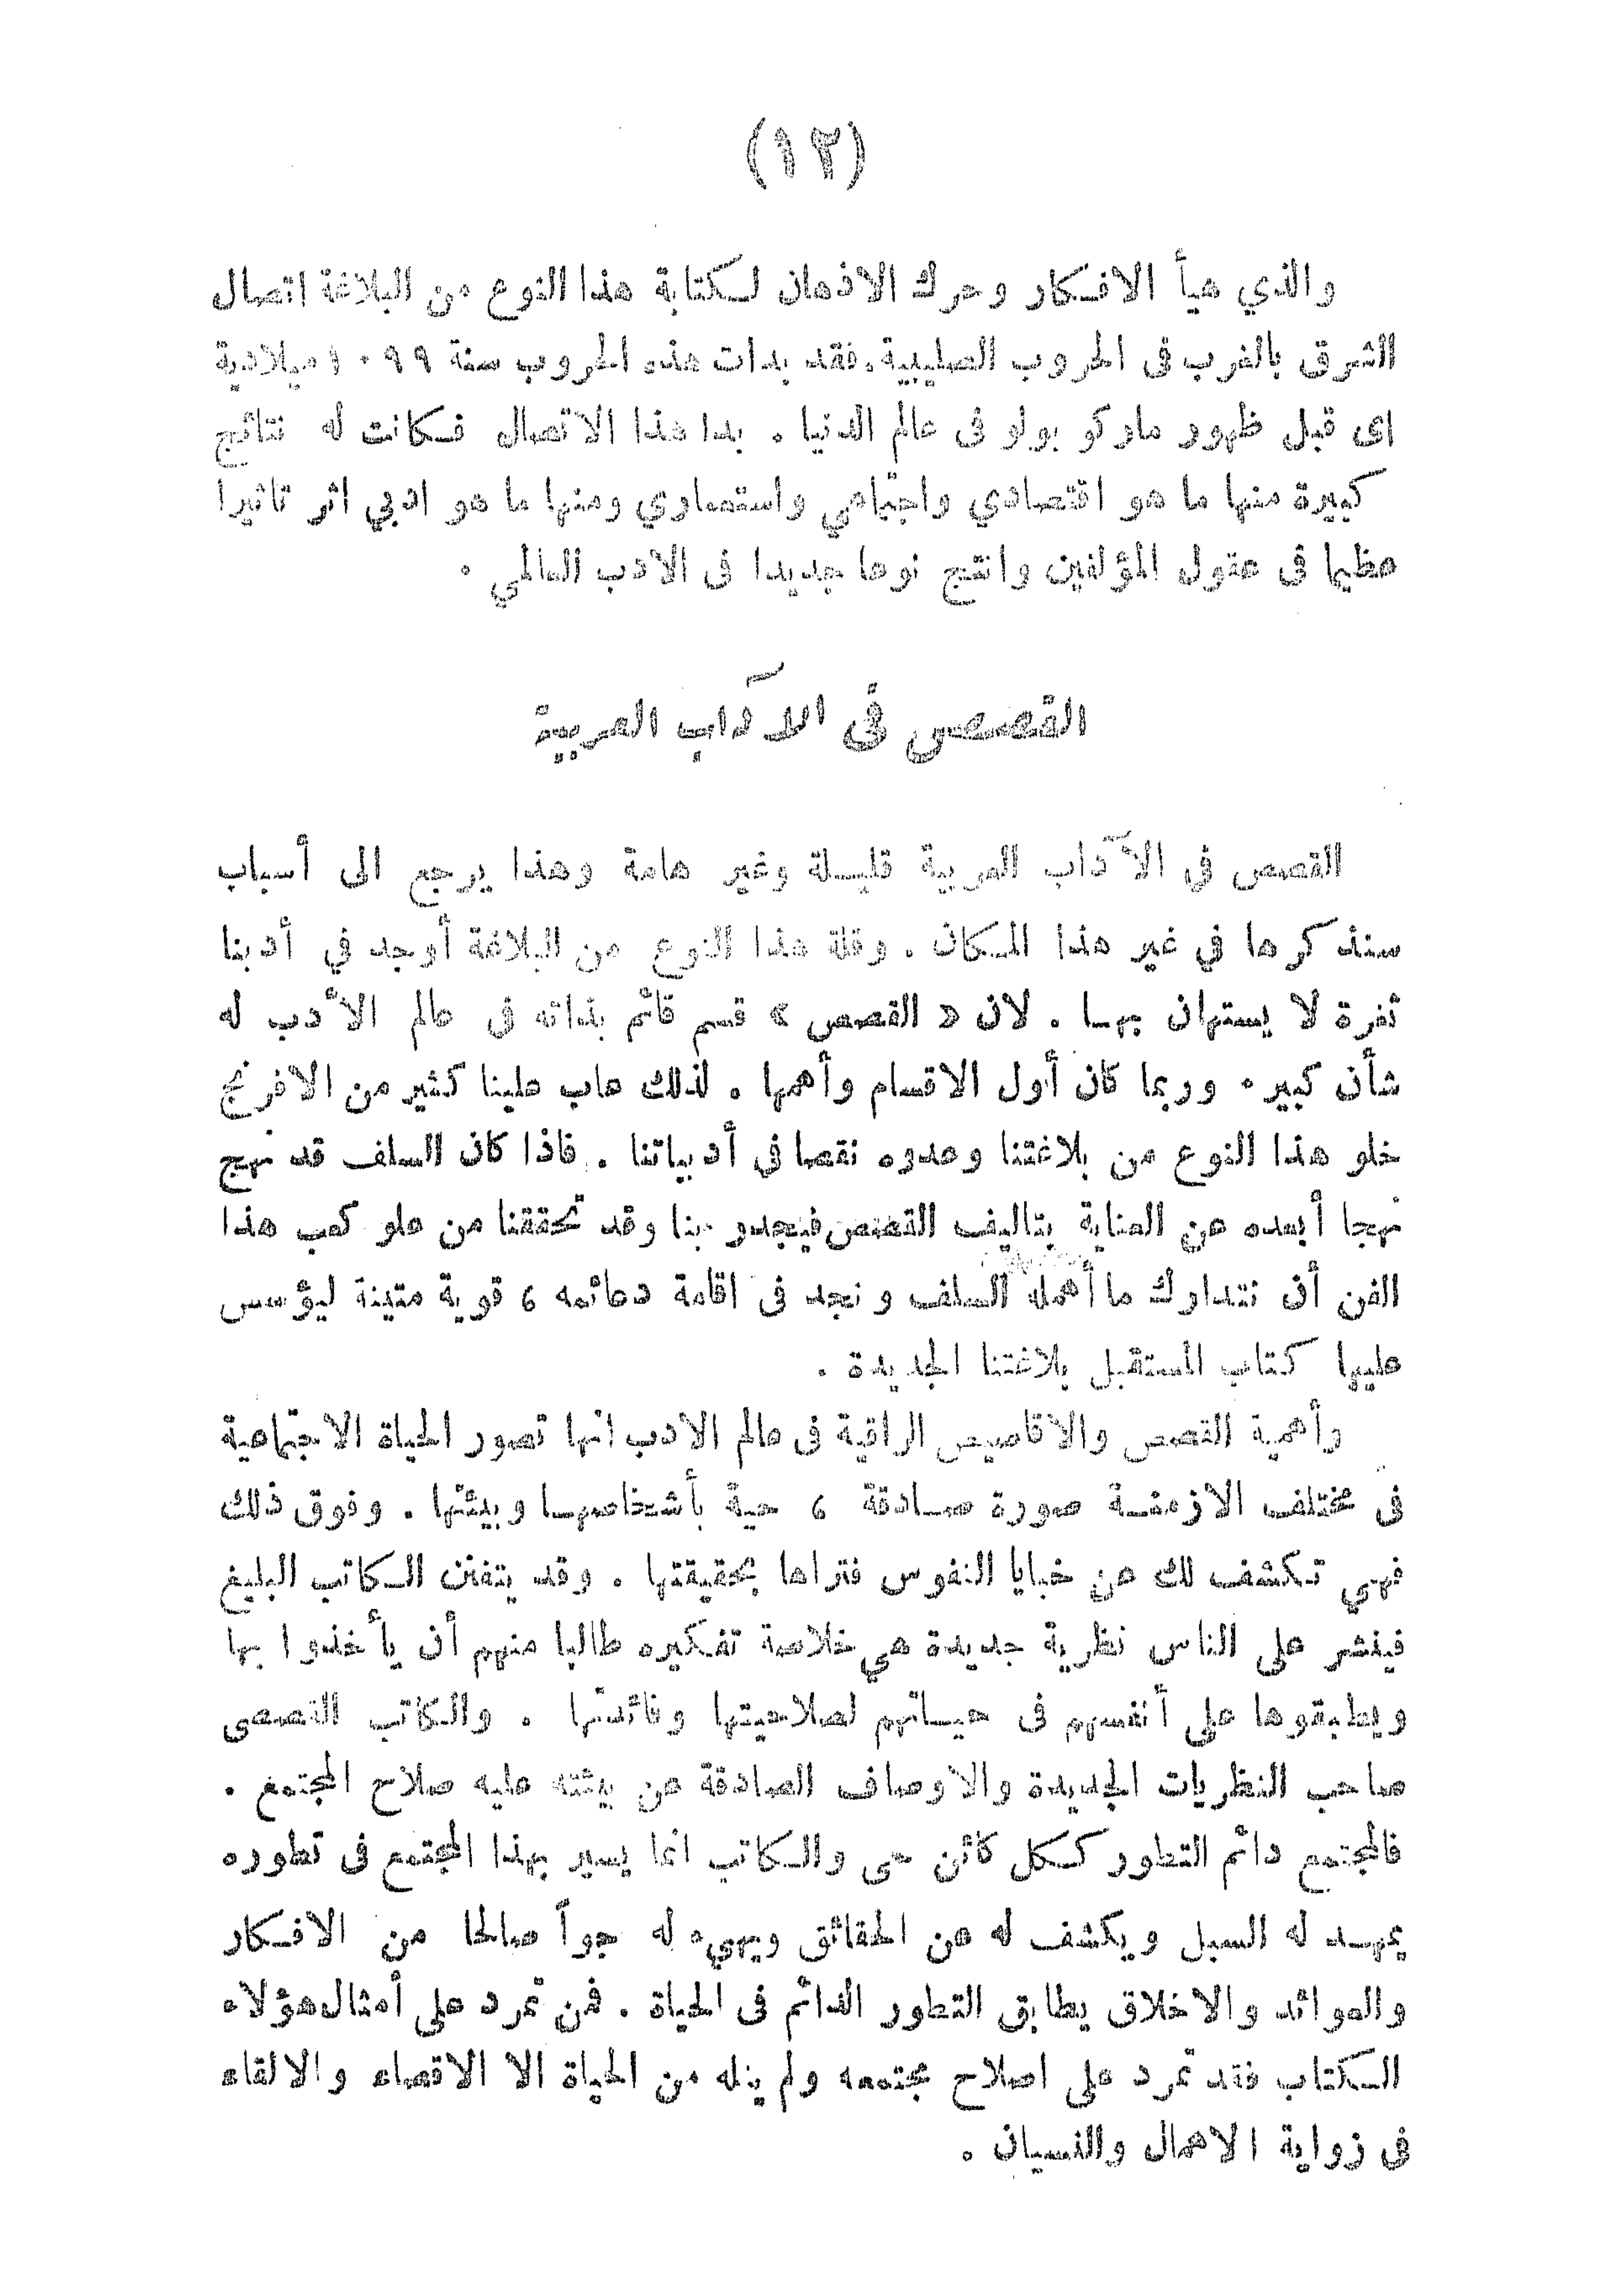 (١٢)
والذي هيأ الافكار وحرك الاذهان لكتابة هذا النوع من البلاغة اتصال
الشرق بالغرب فى الحروب الصليبية. فقد بدات هذه الحروب سنة ١٠٩٩ ميلادية
اى قبل ظهور ماركو بولو فى عالم الدنيا . بدا هذا الاتصال فكانت له نتائج
كبيرة منها ما هو اقتصادي واجتماعي واستعماري ومنها ما هو ادبي اثر تاثيرا
عظيما فى عقول المؤلفين وانتج نوعا جديدا فى الادب العالمي .
القصص في الآداب العربية
القصص فى الآداب العربية قليلة وغير هامة وهذا يرجع الى أسباب
سنذكرها في غير هذا المكان . وقلة هذا النوع من البلاغة أوجد في أدبنا
ثغرة لا يستهان بها . لان « القصص » قسم قائم بذاته فى عالم الأدب له
شأن كبير . وربما كان أول الاقسام وأهمها . لذلك عاب علينا كثير من الافرنج
خلو هذا النوع من بلاغتنا وعدوه نقصا في أدبياتنا . فاذا كان السلف قد نهج
نهجا أبعده عن العناية بتاليف القصص فيجدر بنا وقد تحققنا من علو كعب هذا
الفن أن نتدارك ما أهمله السلف ونجد فى اقامة دعائمه ، قوية متينة ليؤسس
عليها كتاب المستقبل بلاغتنا الجديدة .
وأهمية القصص والاقاصيص الراقية فى عالم الادب انها تصور الحياة الاجتماعية
فى مختلف الازمنة صورة صادقة ، حية بأشخاصها وبيئتها . وفوق ذلك
فهي تكشف لك عن خبايا النفوس فتراها بحقيقتها . وقد يتفنن الكاتب البليغ
فينشر على الناس نظرية جديدة هي خلاصة تفكيره طالبا منهم أن يأخذوا بها
ويطبقوها على أنفسهم فى حياتهم لصلاحيتها وفائدتها . والكاتب القصصى
صاحب النظريات الجديدة والاوصاف الصادقة عن بيئته عليه صلاح المجتمع .
فالمجتمع دائم التطور ككل كائن حى والكاتب انما يسير بهذا المجتمع فى تطوره
يمهد له السبل ويكشف له عن الحقائق ويهيء له جواً صالحا من الافكار
والعوائد والاخلاق يطابق التطور الدائم فى الحياة . فمن تمرد على أمثال هؤلاء
الكتاب فقد تمرد على اصلاح مجتمعه ولم ينله من الحياة الا الاقصاء والالقاء
فى زواية الاهمال والنسيان .